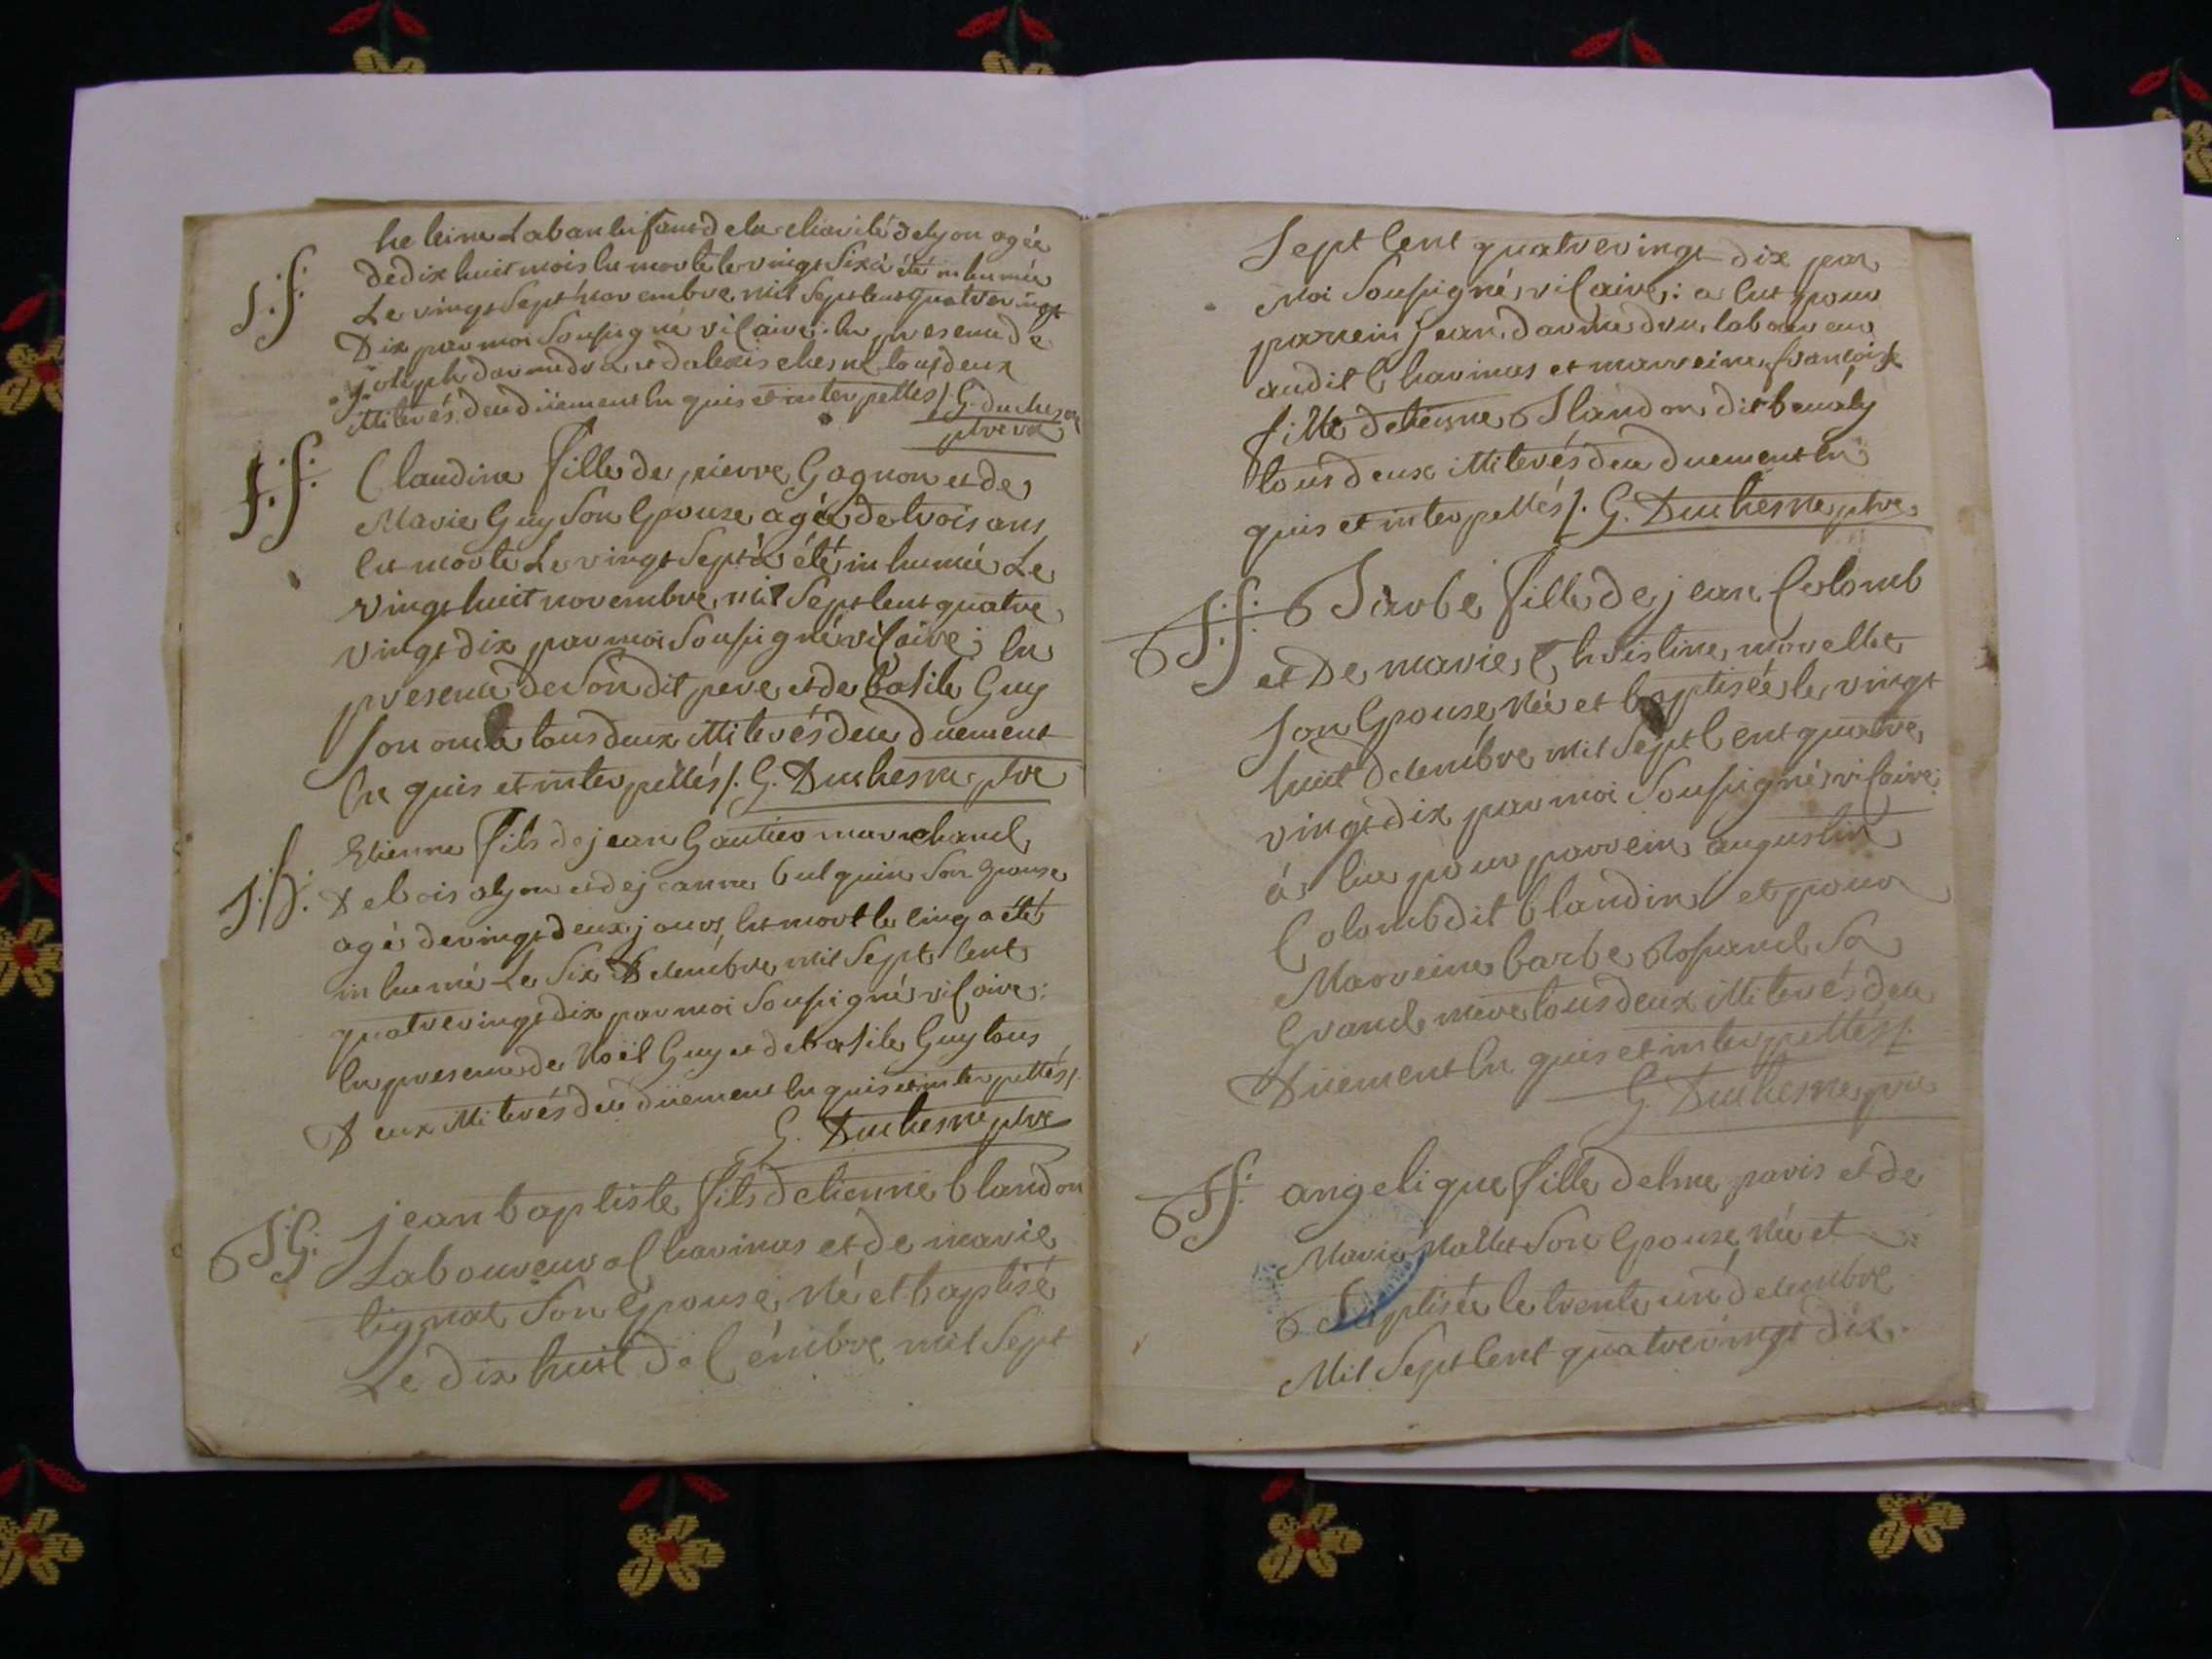 heleine Laban enfant de la charité de lyon agée
S. f. de dix huit mois en morte le vingt six a été inhumée
Le vingt Sept novembre mil Sept cent quatre vingt
Dix par moi Soussigné vicaire: en presence de
joseph darmedru et d'alexis chesne tous deux
illiterés de ce düement enquis et interpellés /. G. duchesne
ptre vic
S. f. Claudine fille de pierre Gagnon et de
Marie Guy Son Epouse agée de trois ans
est morte Le vingt Sept a été inhumée Le
vingt huit novembre mil Sept cent quatre
vingt dix par moi Soussigné vicaire; en
presence de Son dit pere et de basile Guy
Son oncle tous deux illiterés de ce duement
Enquis et interpellés /. G. Duchesne ptre
S. G. Etienne fils de jean Gautier marchand
De bois a lyon et de jeanne Son Epouse
agé de vingt deux jours est mort le cinq a été
inhumé Le Six Decembre mil Sept cent
quatre vingt dix par moi Soussigné vicaire:
En presence de Noël Guy et de basile Guy tous
Deux illiterés de ce düement enquis et interpellés /.
G. Duchesne ptre
B. G. jean baptiste fils d'etienne blandon
Laboureur a Charinas et de marie
tignat Son Epouse, Né et baptisé
Le dix huit decembre mil Sept
Sept Cent quatre vingt dix par
Moi Soussigné vicaire: a eut pour
parrein jean darmedru laboureur
audit Charinas et marreine francoise
fille d'etienne Blandon dit
tous deux illiterés de ce duement en
quis et interpellés /. G. Duchesne ptre
B. f. Barbe fille de jean Colomb
et De marie Christine morellet
Son Epouse, Née et baptisée le vingt
huit decembre mil Sept Cent quatre
vingt dix par moi Soussigné vicaire
à eue pour parrein augustin
Colomb dit blandin et pour
Marreine barbe Sa
Grand mere tous deux illiterés de ce
Düement enquis et interpellés /.
G. Duchesne ptre
B. f. angelique fille de paris et de
Marie Mallet Son Epouse Née et
Baptisée le trente un decembre
Mil Sept Cent quatre vingt dix.